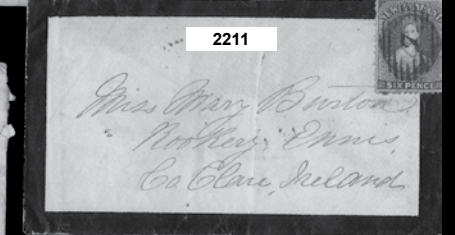 2211
NEW ZEALAND
SIX PENCE
Miss Mary Burton
Rookery, Ennis,
Co Clare, Ireland